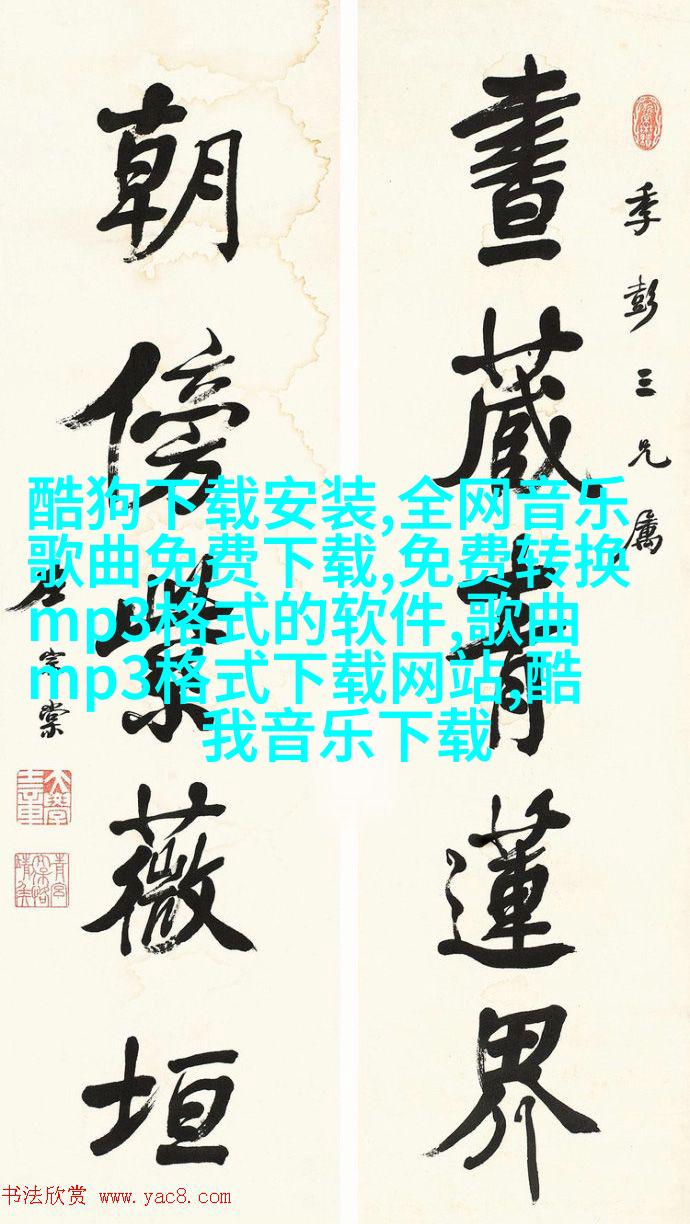 季彭三兄属
晝藏青蓮界
朝傍紫薇垣
左宗棠
酷狗下载安装,全网音乐
歌曲免费下载,免费转换
mp3格式的软件,歌曲
mp3格式下载网站,酷
我音乐下载
书法欣赏 www.yac8.com